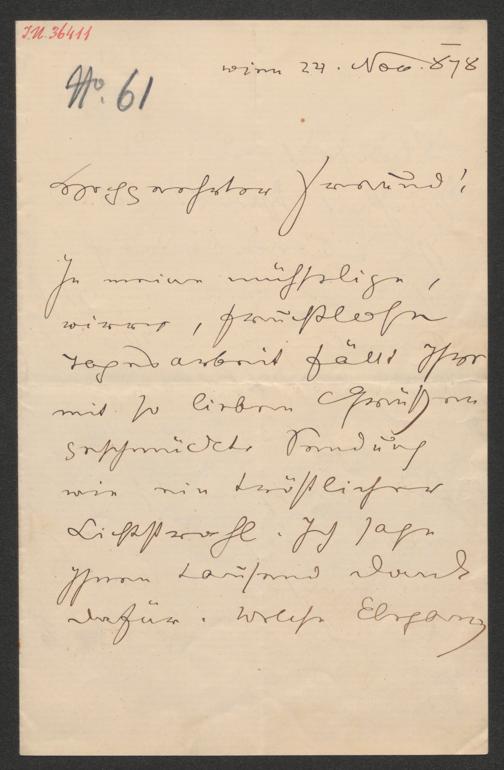 I.N. 36411
No. 61
Wien 24. Nov. 878
Hochgeehrter Freund!
In meine mühselige,
wirre, fruchtlose
Tagesarbeit fällt Ihre
mit so lieben Grüßen
geschmückte Sendung
wie ein tröstlicher
Lichtstrahl. Ich sage
Ihnen tausend Dank
dafür. Welche Eleganz